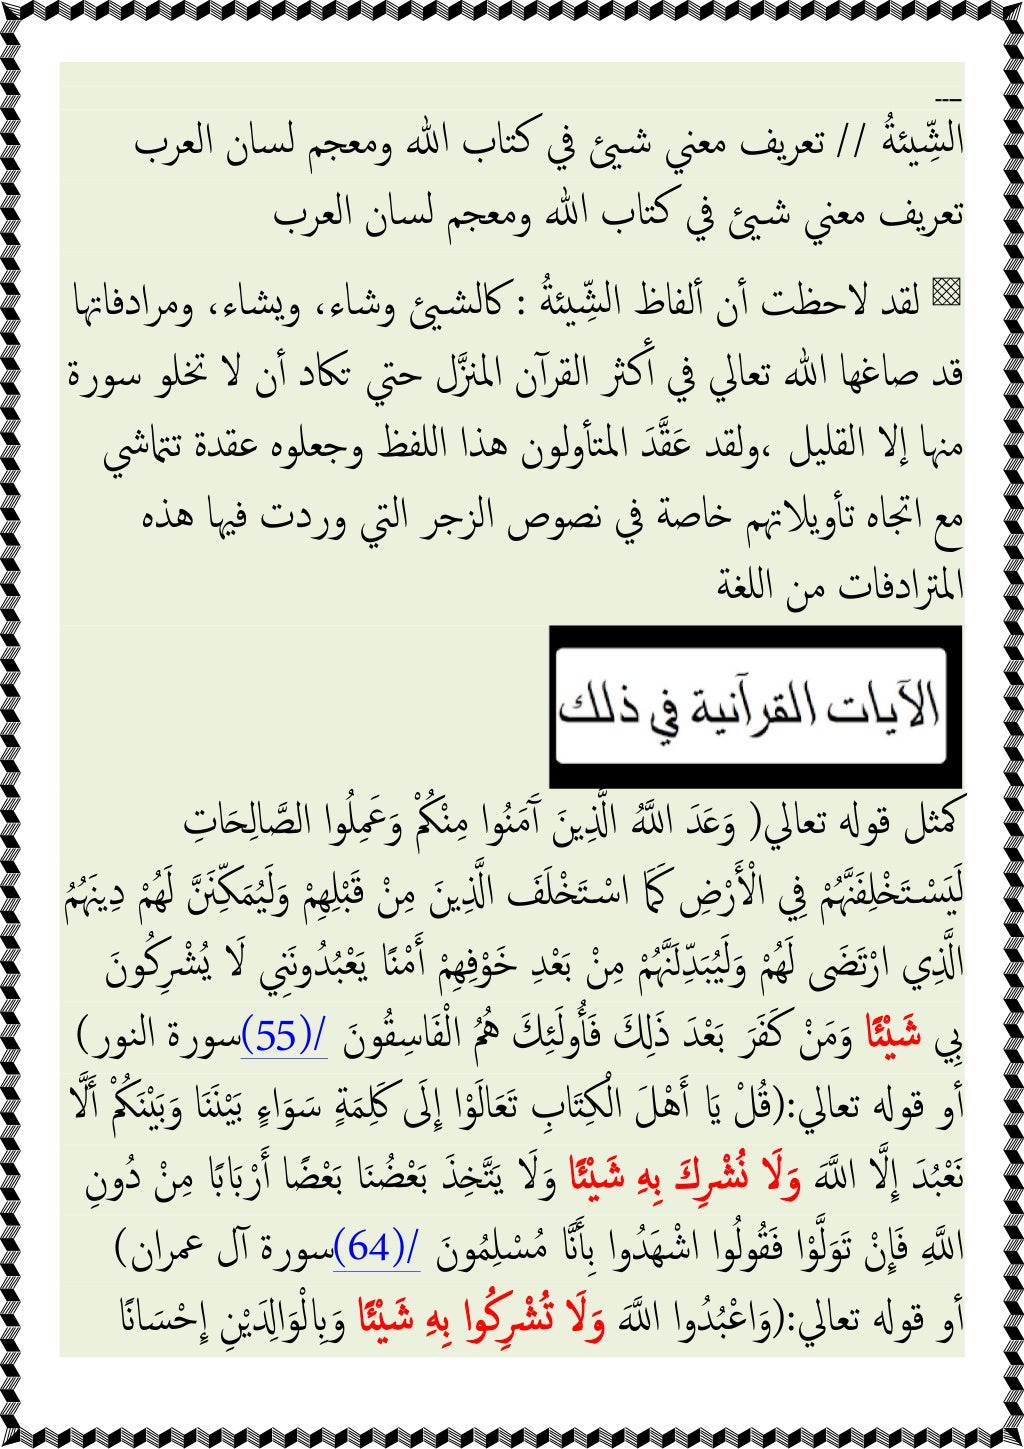 ----
الشِّيئةُ // تعريف معني شيئ في كتاب الله ومعجم لسان العرب
تعريف معني شيئ في كتاب الله ومعجم لسان العرب
▩ لقد لاحظت أن ألفاظ الشِّيئةُ : كالشيئ وشاء، ويشاء، ومرادفاتها
قد صاغها الله تعالي في أكثر القرآن المنزَّل حتي تكاد أن لا تخلو سورة
منها إلا القليل ،ولقد عَقَّدَ المتأولون هذا اللفظ وجعلوه عقدة تتماشي
مع اتجاه تأويلاتهم خاصة في نصوص الزجر التي وردت فيها هذه
المترادفات من اللغة
الآيات القرآنية في ذلك
كمثل قوله تعالي( وَعَدَ اللَّهُ الَّذِينَ آَمَنُوا مِنْكُمْ وَعَمِلُوا الصَّالِحَاتِ
لَيَسْتَخْلِفَنَّهُمْ فِي الْأَرْضِ كَمَا اسْتَخْلَفَ الَّذِينَ مِنْ قَبْلِهِمْ وَلَيُمَكِّنَنَّ لَهُمْ دِينَهُمُ
الَّذِي ارْتَضَى لَهُمْ وَلَيُبَدِّلَنَّهُمْ مِنْ بَعْدِ خَوْفِهِمْ أَمْنًا يَعْبُدُونَنِي لَا يُشْرِكُونَ
بِي شَيْئًا وَمَنْ كَفَرَ بَعْدَ ذَلِكَ فَأُولَئِكَ هُمُ الْفَاسِقُونَ /(55)سورة النور)
أو قوله تعالي:(قُلْ يَا أَهْلَ الْكِتَابِ تَعَالَوْا إِلَى كَلِمَةٍ سَوَاءٍ بَيْنَنَا وَبَيْنَكُمْ أَلَّا
نَعْبُدَ إِلَّا اللَّهَ وَلَا نُشْرِكَ بِهِ شَيْئًا وَلَا يَتَّخِذَ بَعْضُنَا بَعْضًا أَرْبَابًا مِنْ دُونِ
اللَّهِ فَإِنْ تَوَلَّوْا فَقُولُوا اشْهَدُوا بِأَنَّا مُسْلِمُونَ /(64)سورة آل عمران)
أو قوله تعالي:(وَاعْبُدُوا اللَّهَ وَلَا تُشْرِكُوا بِهِ شَيْئًا وَبِالْوَالِدَيْنِ إِحْسَانًا